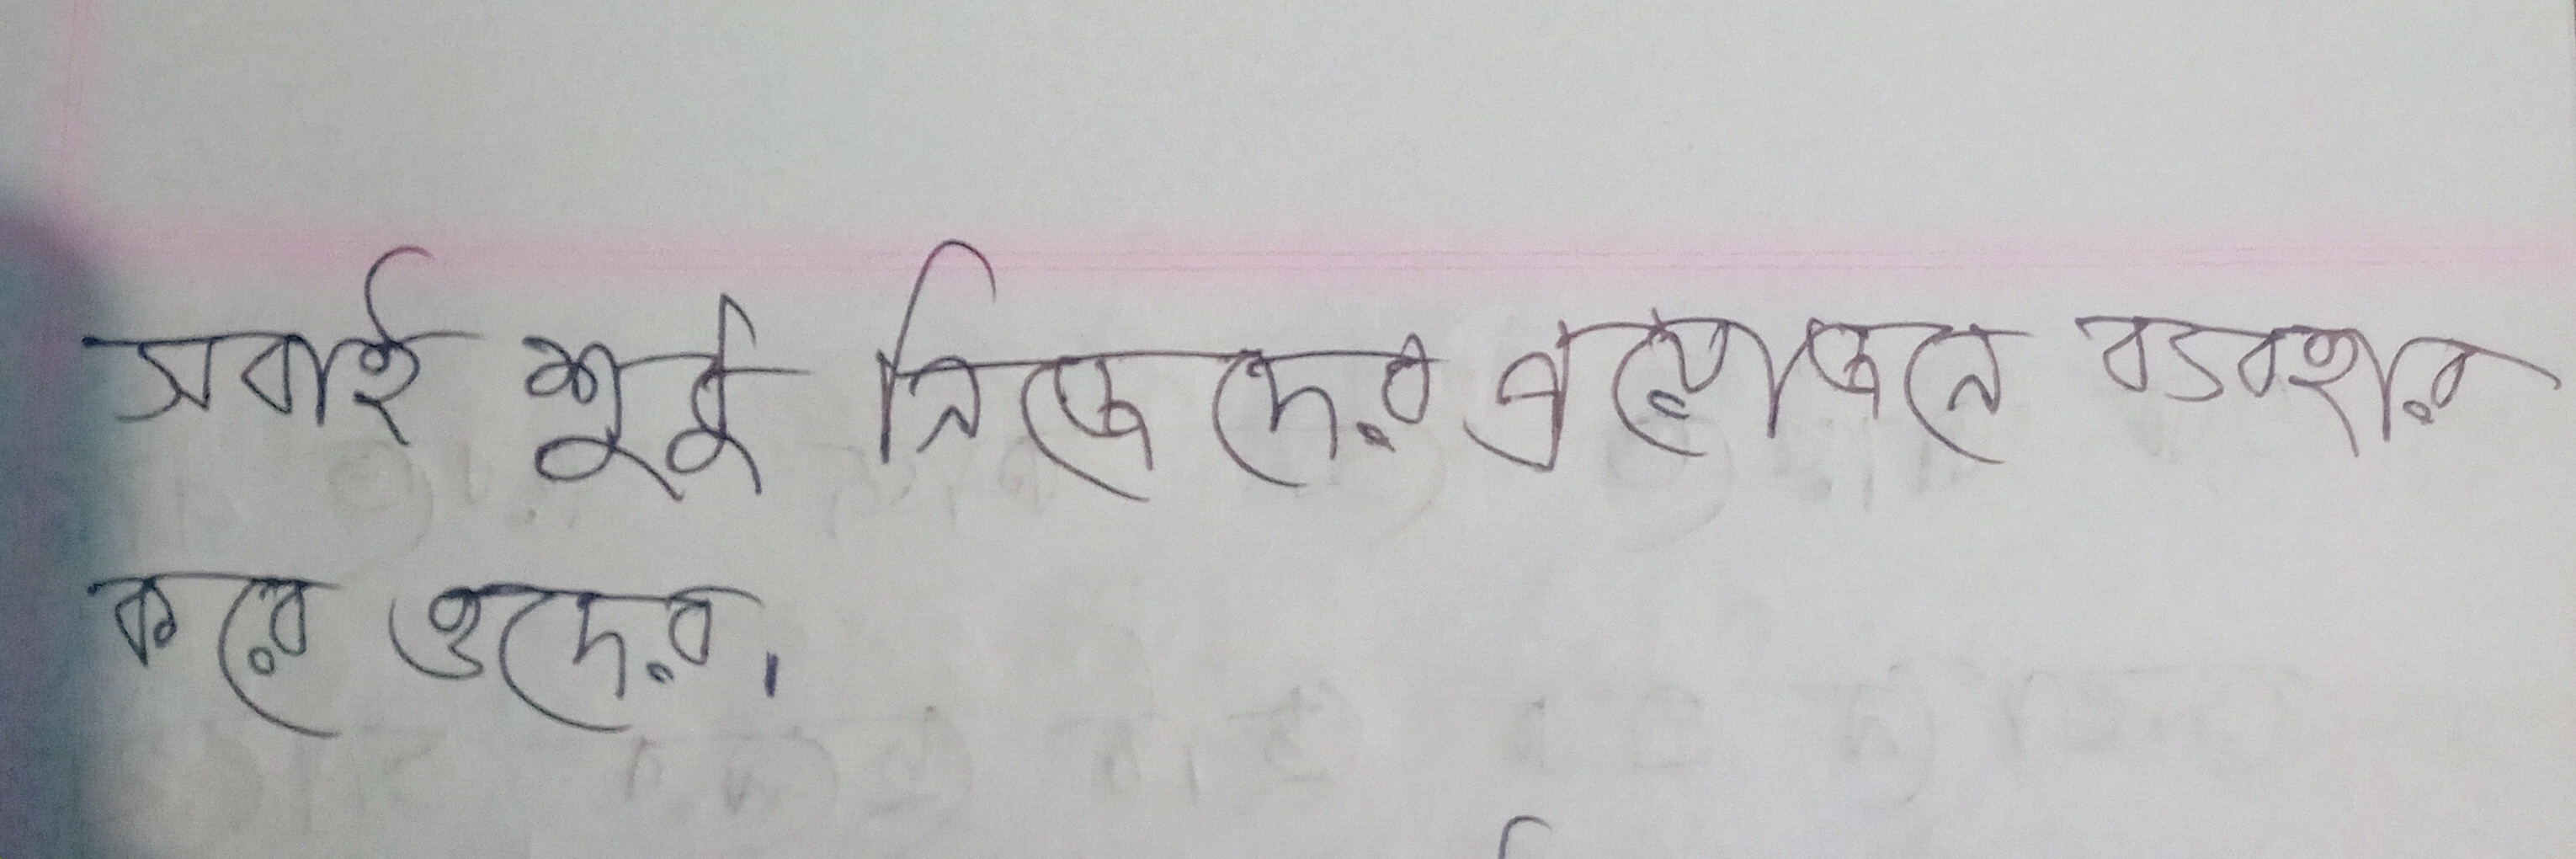 সবাই শুধু নিজেদের প্রয়োজনে ব্যবহার
করে ওদের।